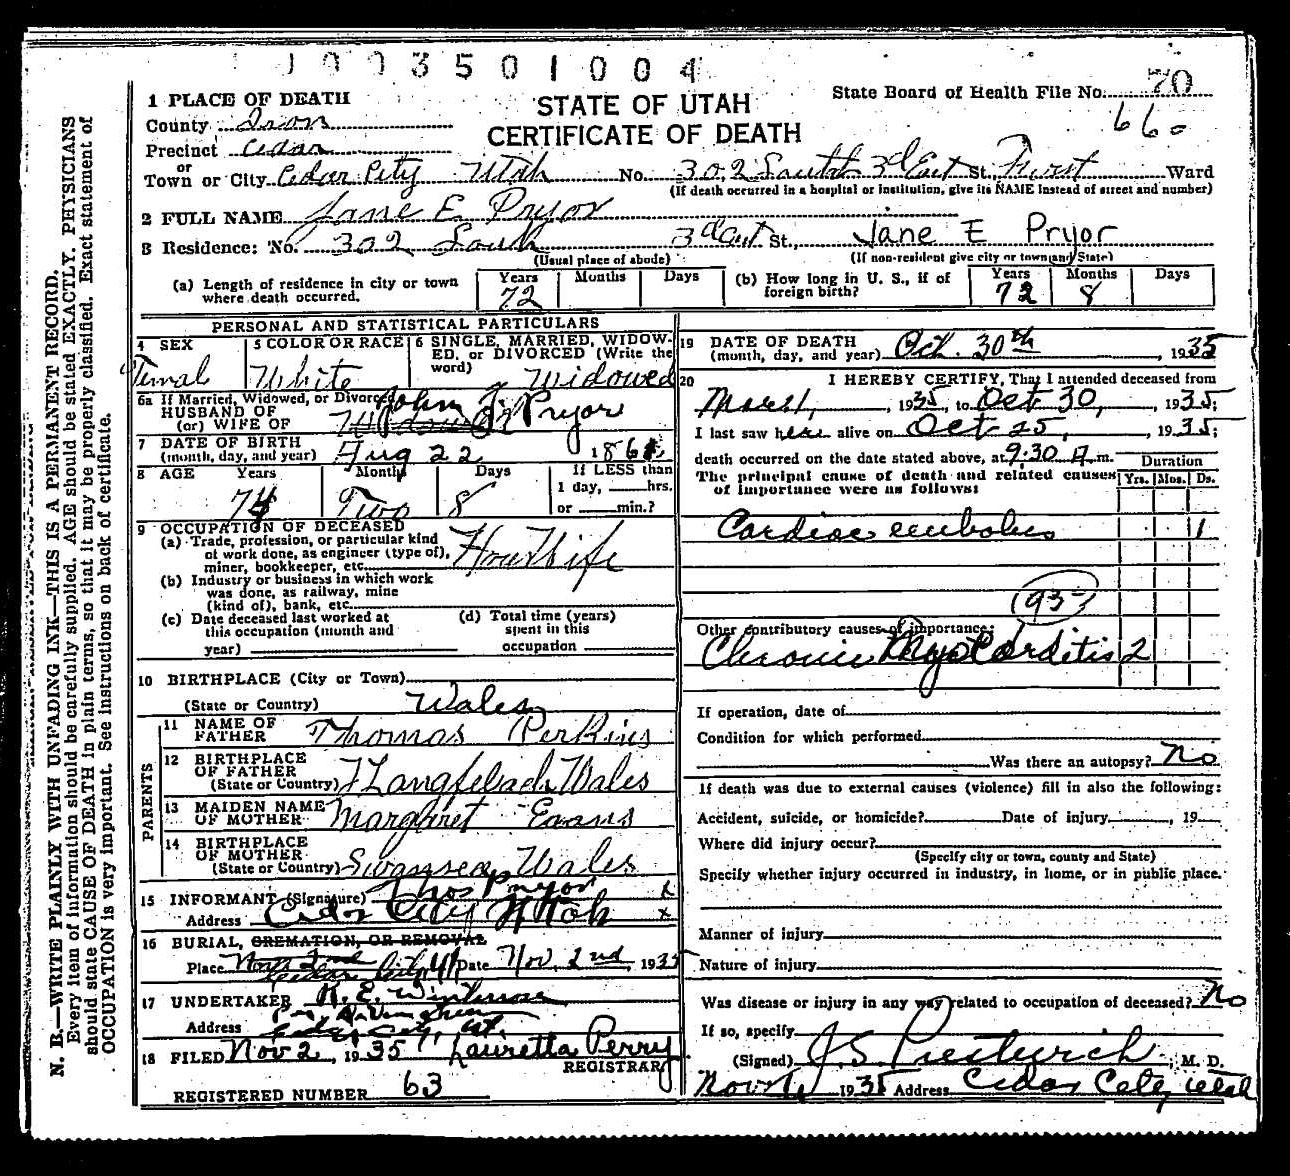 1003501004
1 PLACE OF DEATH
STATE OF UTAH
CERTIFICATE OF DEATH
State Board of Health File No. 70
660
County Iron
Precinct Cedar
or
Town or City Cedar City Utah No. 302 South 3d East St. First Ward
(If death occurred in a hospital or institution, give its NAME instead of street and number)
2 FULL NAME Jane E Pryor
3 Residence: No. 302 South 3d East St., Jane E Pryor
(Usual place of abode) (If non-resident give city or town and State)
(a) Length of residence in city or town where death occurred. Years 72 Months Days
(b) How long in U. S., if of foreign birth? Years 72 Months 8 Days
PERSONAL AND STATISTICAL PARTICULARS
4 SEX Femal
5 COLOR OR RACE White
6 SINGLE, MARRIED, WIDOWED, or DIVORCED (Write the word) Widowed
6a If Married, Widowed, or Divorced
HUSBAND OF
(or) WIFE OF John Pryor
7 DATE OF BIRTH
(month, day, and year) Aug 22 1861
8 AGE Years 74 Months Two Days 8
If LESS than
1 day, hrs.
or min.?
9 OCCUPATION OF DECEASED
(a) Trade, profession, or particular kind
of work done, as engineer (type of),
miner, bookkeeper, etc. HouseWife
(b) Industry or business in which work
was done, as railway, mine
(kind of), bank, etc.
(c) Date deceased last worked at
this occupation (month and
year)
(d) Total time (years)
spent in this
occupation
10 BIRTHPLACE (City or Town)
(State or Country) Wales
PARENTS
11 NAME OF FATHER Thomas Perkins
12 BIRTHPLACE OF FATHER
(State or Country) Wales
13 MAIDEN NAME OF MOTHER Margaret Evans
14 BIRTHPLACE OF MOTHER
(State or Country) Swansea, Wales
15 INFORMANT (Signature) Thos Pryor x
Address Cedar City Utah x
16 BURIAL, CREMATION, OR REMOVAL
Place Cedar City Ut Date Nov. 2nd, 1935
17 UNDERTAKER
Address Cedar City, Ut.
18 FILED Nov 2, 1935 Lauretta Perry
REGISTRAR
REGISTERED NUMBER 63
19 DATE OF DEATH
(month, day, and year) Oct. 30th, 1935
20 I HEREBY CERTIFY, That I attended deceased from
Mar 1, 1935, to Oct 30, 1935;
I last saw her alive on Oct 25, 1935;
death occurred on the date stated above, at 9:30 A m.
Duration
The principal cause of death and related causes
of importance were as follows: Yrs. Mos. Ds.
Cardiac embolus 1
93
Other contributory causes of importance:
Chronic Myocarditis 2
If operation, date of
Condition for which performed
Was there an autopsy? No
If death was due to external causes (violence) fill in also the following:
Accident, suicide, or homicide? Date of injury , 19
Where did injury occur?
(Specify city or town, county and State)
Specify whether injury occurred in industry, in home, or in public place.
Manner of injury
Nature of injury
Was disease or injury in any way related to occupation of deceased? No
If so, specify
(Signed) J S Prestwich, M. D.
Nov 1, 1935 Address Cedar City Utah
N. B.—WRITE PLAINLY WITH UNFADING INK—THIS IS A PERMANENT RECORD.
Every item of information should be carefully supplied. AGE should be stated EXACTLY. PHYSICIANS
should state CAUSE OF DEATH in plain terms, so that it may be properly classified. Exact statement of
OCCUPATION is very important. See instructions on back of certificate.